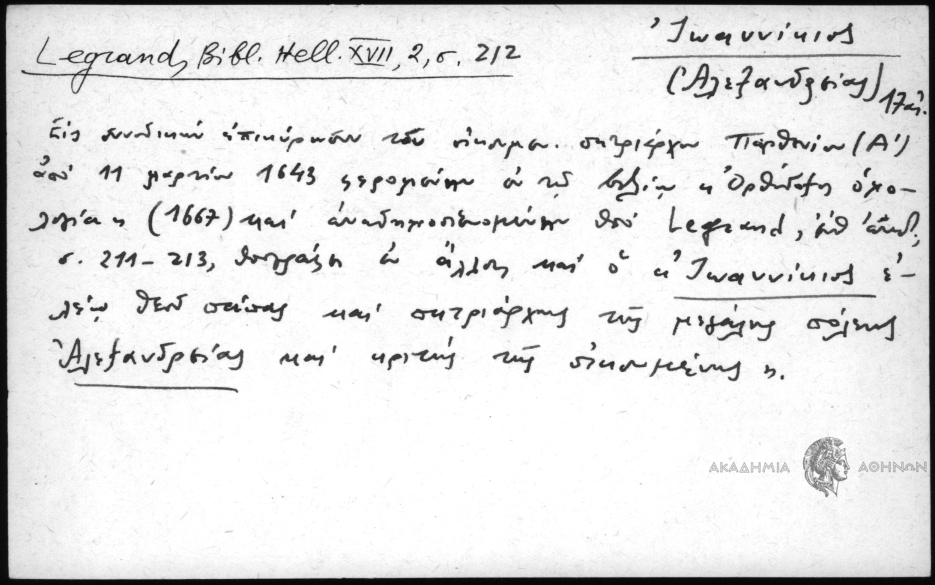 Legrand, Bibl. Hell. XVII, 2, σ. 212
Ἰωαννίκιος
(Ἀλεξανδρείας) 17 αἰ.
Εἰς συνοδικὴν ἐπικύρωσιν τοῦ οἰκουμεν. πατριάρχου Παρθενίου (Α')
ἀπὸ 11 μαρτίου 1643 ἐν τῷ βιβλίῳ « Ὀρθόδοξος ὁμο-
λογία » (1667) καὶ ἀναδημοσιευομένην ὑπὸ Legrand, ἔνθ' ἀνωτ.,
σ. 211-213, ὑπογράφει ἐν ἄλλοις καὶ ὁ « Ἰωαννίκιος ἐ-
λέῳ Θεοῦ πάπας καὶ πατριάρχης τῆς μεγάλης πόλεως
Ἀλεξανδρείας καὶ κριτὴς τῆς οἰκουμένης ».
ΑΚΑΔΗΜΙΑ ΑΘΗΝΩΝ